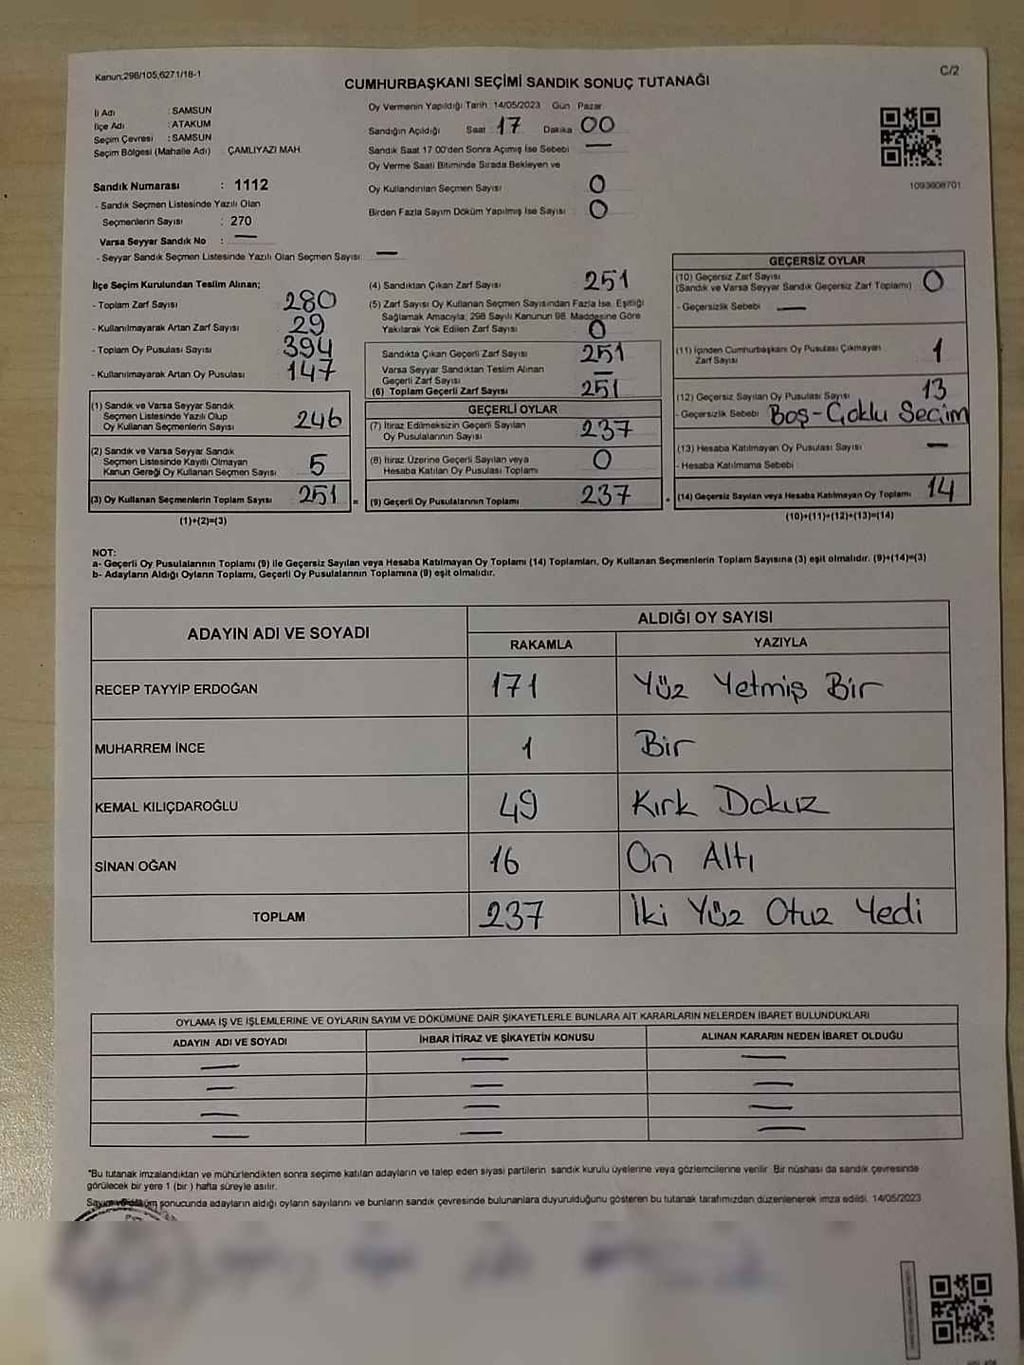 Kanun;298/105;6271/18-1
C/2
CUMHURBAŞKANI SEÇİMİ SANDIK SONUÇ TUTANAĞI
İl Adı : SAMSUN
İlçe Adı : ATAKUM
Seçim Çevresi : SAMSUN
Seçim Bölgesi (Mahalle Adı) ÇAMLIYAZI MAH.
Sandık Numarası : 1112
- Sandık Seçmen Listesinde Yazılı Olan
Seçmenlerin Sayısı : 270
Varsa Seyyar Sandık No : —
- Seyyar Sandık Seçmen Listesinde Yazılı Olan Seçmen Sayısı: —
Oy Vermenin Yapıldığı Tarih 14/05/2023 Gün Pazar
Sandığın Açıldığı Saat 17 Dakika 00
Sandık Saat 17:00'den Sonra Açımış İse Sebebi —
Oy Verme Saati Bitiminde Sırada Bekleyen ve
Oy Kullandırılan Seçmen Sayısı 0
Birden Fazla Sayım Döküm Yapılmış İse Sayısı 0
1093608701
İlçe Seçim Kurulundan Teslim Alınan;
- Toplam Zarf Sayısı 280
- Kullanılmayarak Artan Zarf Sayısı 29
- Toplam Oy Pusulası Sayısı 394
- Kullanılmayarak Artan Oy Pusulası 147
(1) Sandık ve Varsa Seyyar Sandık
Seçmen Listesinde Yazılı Olup
Oy Kullanan Seçmenlerin Sayısı 246
(2) Sandık ve Varsa Seyyar Sandık
Seçmen Listesinde Kayıtlı Olmayan
Kanun Gereği Oy Kullanan Seçmen Sayısı 5
(3) Oy Kullanan Seçmenlerin Toplam Sayısı 251 =
(1)+(2)=(3)
(4) Sandıktan Çıkan Zarf Sayısı 251
(5) Zarf Sayısı Oy Kullanan Seçmen Sayısından Fazla İse, Eşitliği
Sağlamak Amacıyla; 298 Sayılı Kanunun 98. Maddesine Göre
Yakılarak Yok Edilen Zarf Sayısı 0
Sandıkta Çıkan Geçerli Zarf Sayısı 251
Varsa Seyyar Sandıktan Teslim Alınan
Geçerli Zarf Sayısı —
(6) Toplam Geçerli Zarf Sayısı 251
GEÇERLİ OYLAR
(7) İtiraz Edilmeksizin Geçerli Sayılan
Oy Pusulalarının Sayısı 237
(8) İtiraz Üzerine Geçerli Sayılan veya
Hesaba Katılan Oy Pusulası Toplamı 0
(9) Geçerli Oy Pusulalarının Toplamı 237 +
GEÇERSİZ OYLAR
(10) Geçersiz Zarf Sayısı
(Sandık ve Varsa Seyyar Sandık Geçersiz Zarf Toplamı) 0
- Geçersizlik Sebebi —
(11) İçinden Cumhurbaşkanı Oy Pusulası Çıkmayan
Zarf Sayısı 1
(12) Geçersiz Sayılan Oy Pusulası Sayısı 13
- Geçersizlik Sebebi Boş-Çoklu Seçim
(13) Hesaba Katılmayan Oy Pusulası Sayısı —
- Hesaba Katılmama Sebebi
(14) Geçersiz Sayılan veya Hesaba Katılmayan Oy Toplamı 14
(10)+(11)+(12)+(13)=(14)
NOT:
a- Geçerli Oy Pusulalarının Toplamı (9) ile Geçersiz Sayılan veya Hesaba Katılmayan Oy Toplamı (14) Toplamları, Oy Kullanan Seçmenlerin Toplam Sayısına (3) eşit olmalıdır. (9)+(14)=(3)
b- Adayların Aldığı Oyların Toplamı, Geçerli Oy Pusulalarının Toplamına (9) eşit olmalıdır.
ADAYIN ADI VE SOYADI
ALDIĞI OY SAYISI
RAKAMLA YAZIYLA
RECEP TAYYİP ERDOĞAN 171 Yüz Yetmiş Bir
MUHARREM İNCE 1 Bir
KEMAL KILIÇDAROĞLU 49 Kırk Dokuz
SİNAN OĞAN 16 On Altı
TOPLAM 237 İki Yüz Otuz Yedi
OYLAMA İŞ VE İŞLEMLERİNE VE OYLARIN SAYIM VE DÖKÜMÜNE DAİR ŞİKAYETLERLE BUNLARA AİT KARARLARIN NELERDEN İBARET BULUNDUKLARI
ADAYIN ADI VE SOYADI İHBAR İTİRAZ VE ŞİKAYETİN KONUSU ALINAN KARARIN NEDEN İBARET OLDUĞU
— — —
— — —
— — —
— — —
*Bu tutanak imzalandıktan ve mühürlendikten sonra seçime katılan adayların ve talep eden siyasi partilerin sandık kurulu üyelerine veya gözlemcilerine verilir. Bir nüshası da sandık çevresinde
görülecek bir yere 1 (bir ) hafta süreyle asılır.
sonucunda adayların aldığı oyların sayılarını ve bunların sandık çevresinde bulunanlara duyurulduğunu gösteren bu tutanak tarafımızdan düzenlenerek imza edildi. 14/05/2023